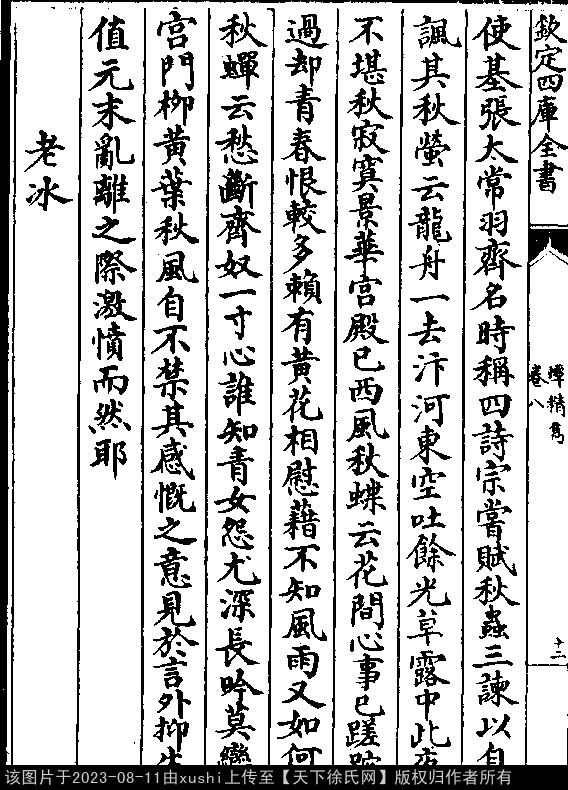 欽定四庫全書
蟫精雋
卷八
十二
使基張太常羽齊名時稱四詩宗嘗賦秋蟲三諫以自
諷其秋螢云龍舟一去汴河東空吐餘光草露中此夜
不堪秋寂寞景華宮殿已西風秋蝶云花間心事已蹉跎
過却青春恨較多賴有黄花相慰藉不知風雨又如何
秋蟬云愁斷齊奴一寸心誰知青女怨尤深長吟莫
宮門柳黄葉秋風自不禁其感慨之意見於言外抑
值元末亂離之際激憤而然耶
老冰
该图片于2023-08-11由xushi上传至【天下徐氏网】版权归作者所有